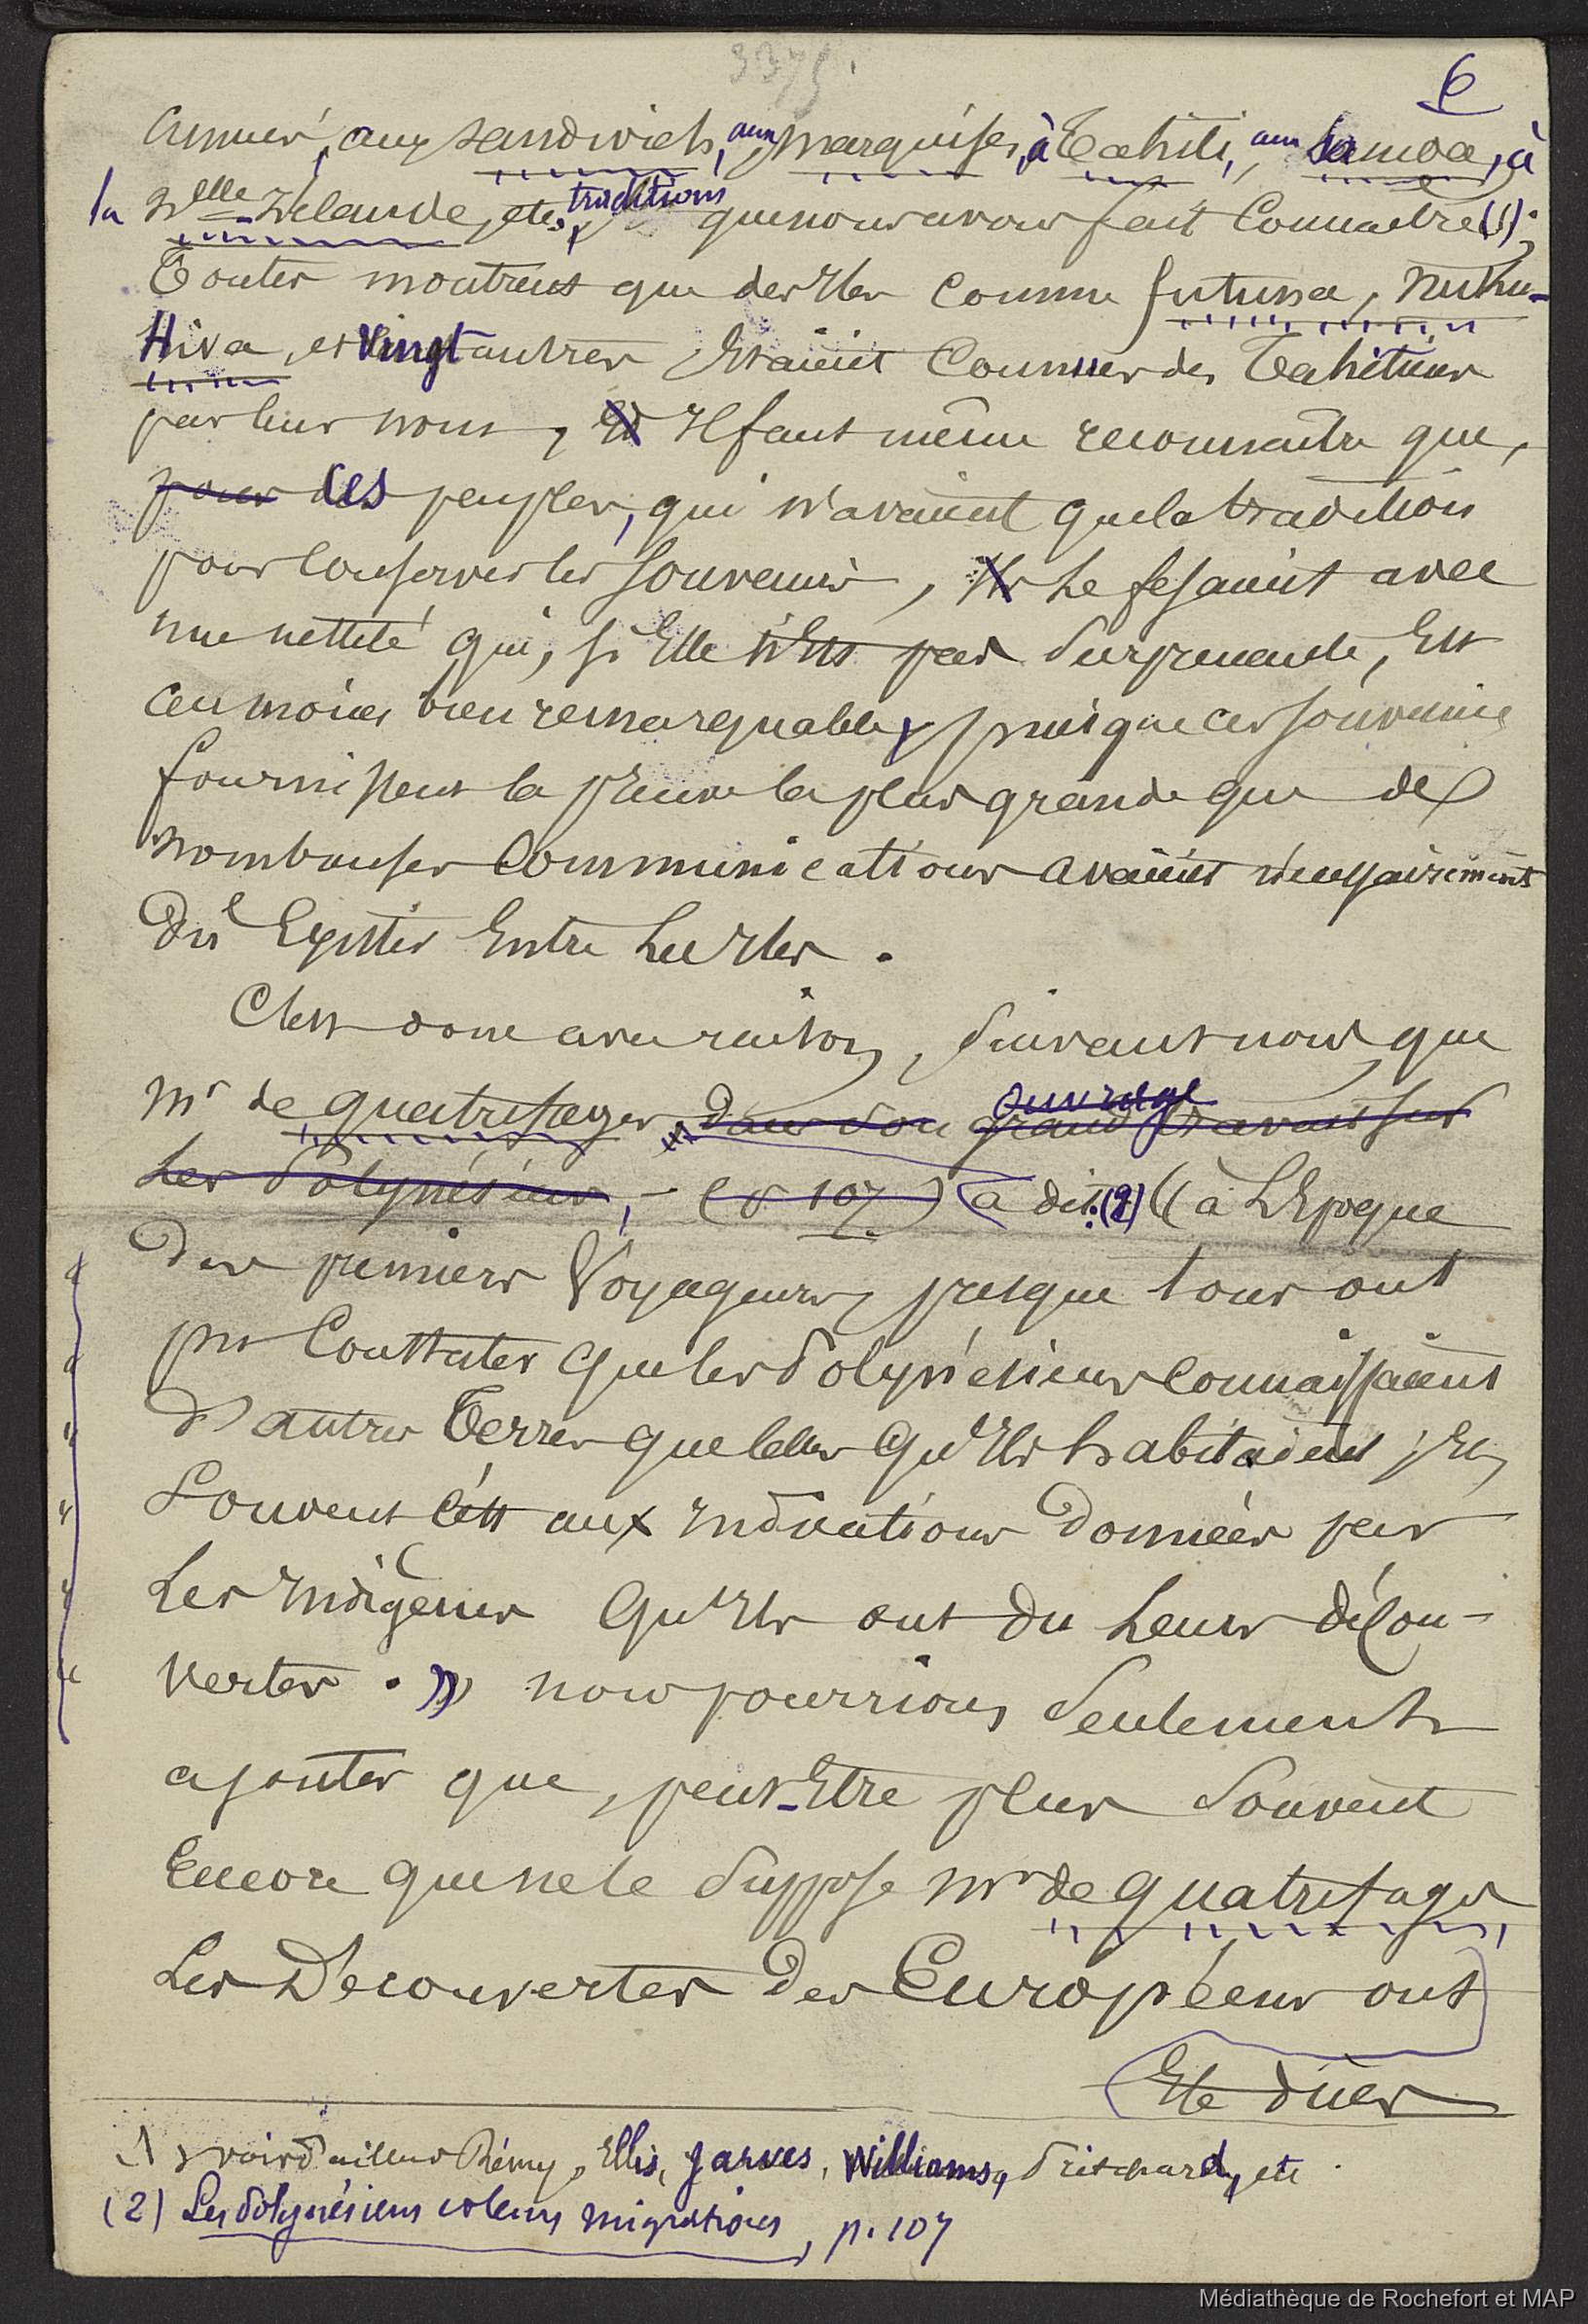 3375
6
connues, aux Sandwich, aux Marquises, à Tahiti, aux Samoa, à
la Nlle Zélande, etc, traditions que nous avons fait connaître (1);
Toutes montrent que des Iles comme futuna, Nuku-
Hiva, et vingt autres Etaient connues des Tahitiens
par leur nom, Et Il faut même reconnaître que,
pour ces peuples, qui n'avaient que la tradition
pour conserver les souvenirs, Ils Le fesaient avec
une netteté qui, si Elle n'Est pas Surprenante, Est
au moins bien remarquable, puisque ces souvenirs
fournissent la preuve la plus grande que de
nombreuses communications avaient nécessairement
Dû Exister Entre Les Iles.
C'est donc avec raison, Suivant nous, que
Mr de Quatrefages, dans son grand ouvrage travail sur
Les Polynésiens, - (p 107) a dit: (2) « à L'Epoque
Des premiers Voyageurs, presque tous ont
pu Constater que les Polynésiens connaissaient
D'autres Terres que celles qu'Ils habitaient; Et,
Souvent c'est aux Indications Données par
Les Indigènes qu'Ils ont du Leurs décou-
vertes. » nous pourrions Seulement
ajouter que, peut-Etre plus Souvent
Encore que ne le Suppose Mr de Quatrefages
Les Découvertes Des Européens ont
Ete dues
1) voir d'ailleurs Rémy, Ellis, Jarves, Williams, Pritchard, etc.
(2) Les Polynésiens et leurs migrations, p. 107
Médiathèque de Rochefort et MAP